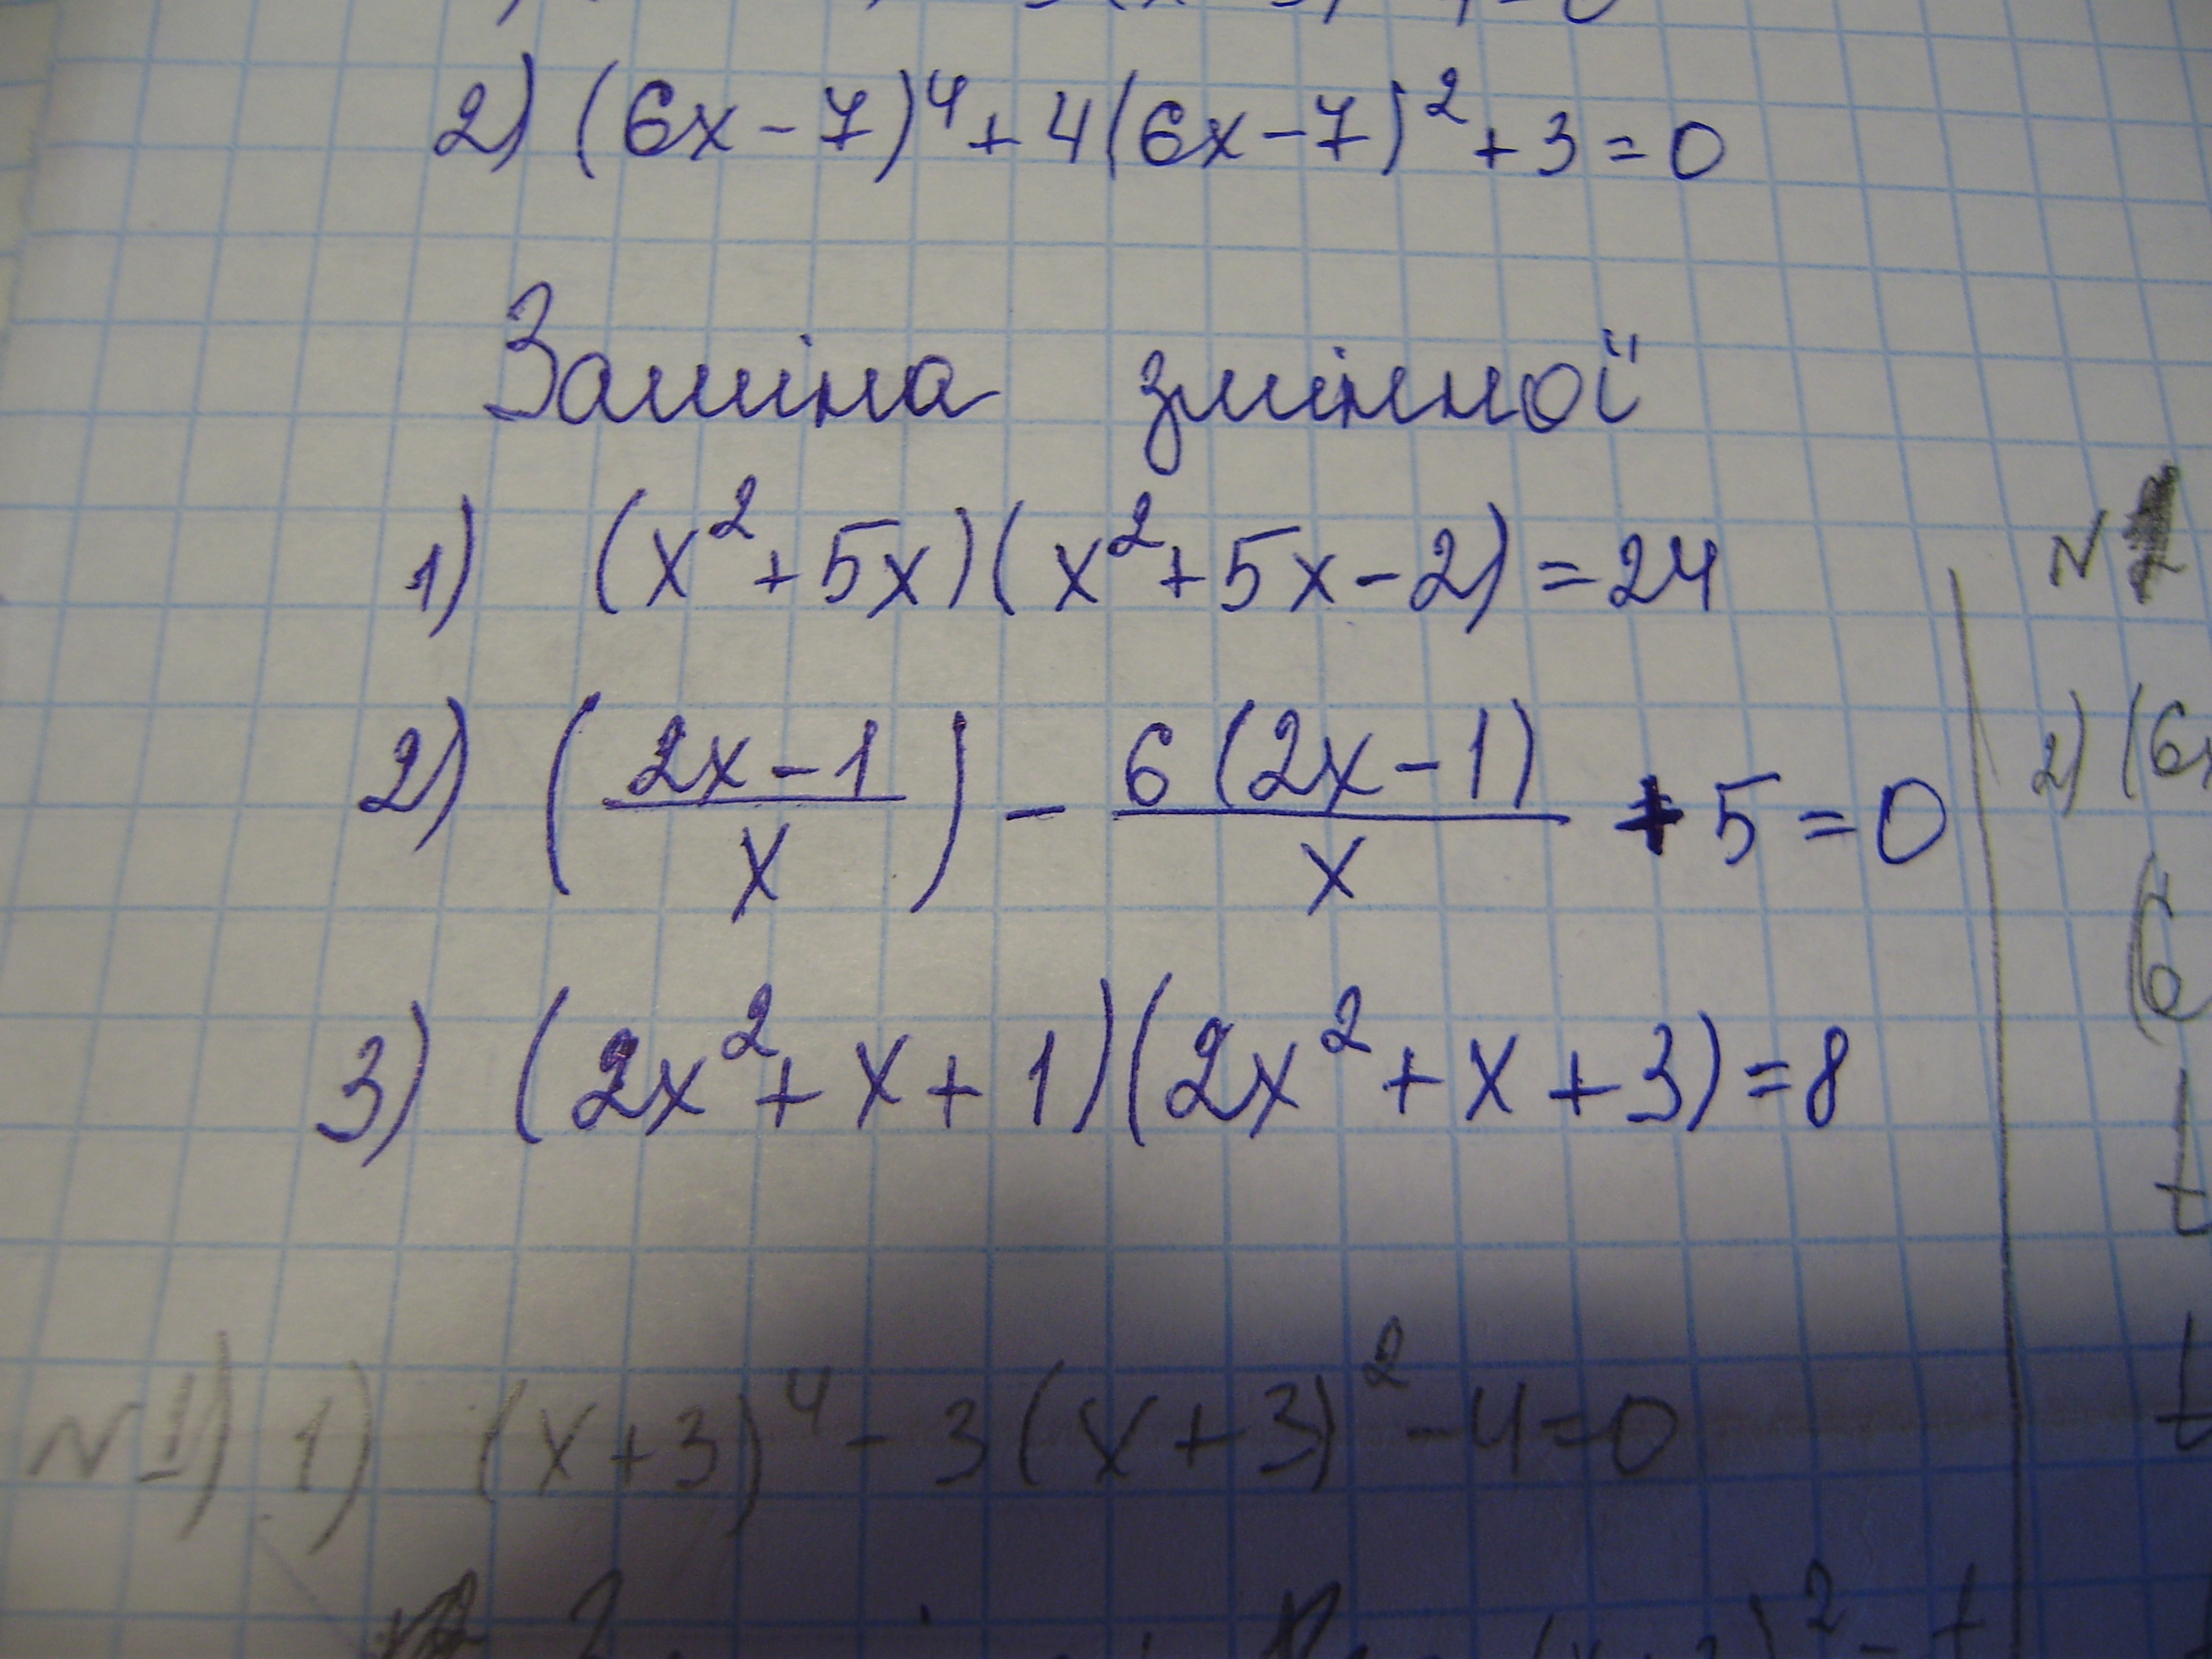 2) (6x-7)⁴+4(6x-7)²+3=0
Заміна змінної
1) (x²+5x)(x²+5x-2)=24
2) ((2x-1)/x) - 6(2x-1)/x +5=0
3) (2x²+x+1)(2x²+x+3)=8
N 1) 1) (x+3)⁴-3(x+3)²-4=0
N 1
2) (6x
(6
t
t